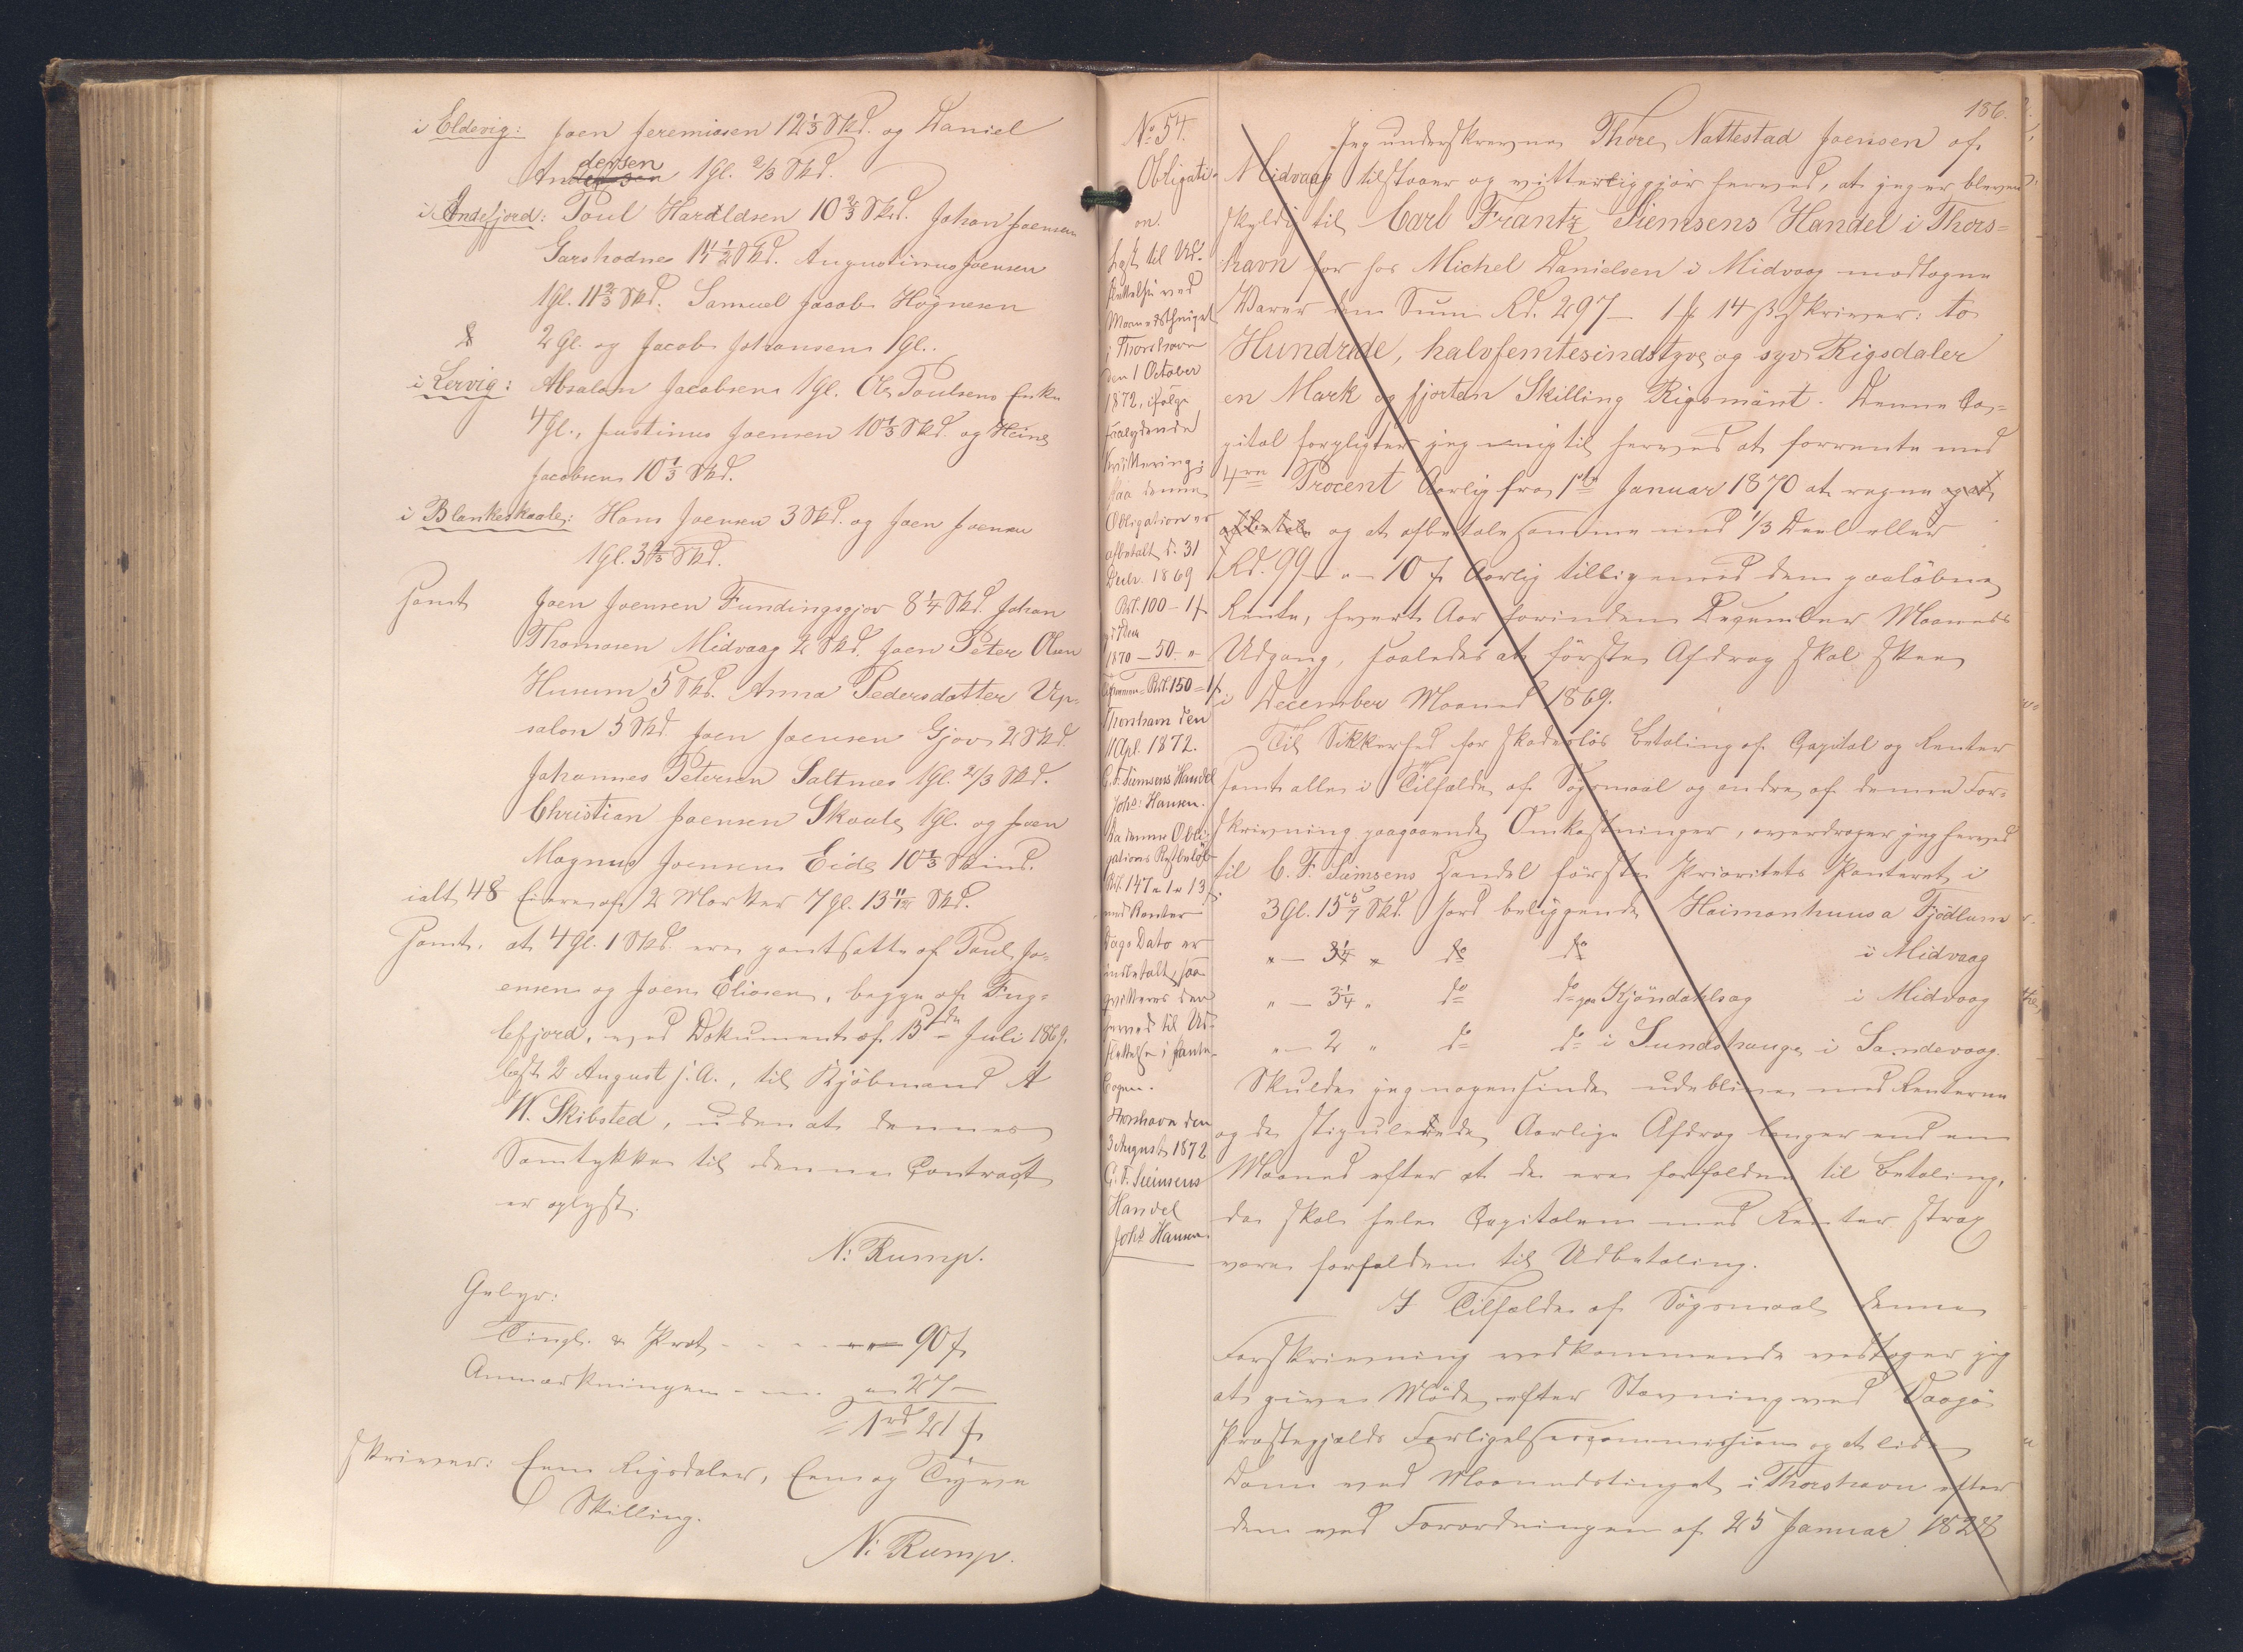 i Eldevig: Joen Jeremiasen 12 1/3 Skd. og Daniel
Andersen 1 Gl. 2/3 Skd.
i Andefjord: Poul Haraldsen 10 2/3 Skd. Johan Joensen
Garshodnes 11 1/2 Skd. Augustinus Joensen
1 Gl. 11 2/3 Skd. Samuel Jacob Høgnesen
2 Gl. og Jacob Johansen 1 Gl.
i Lervig: Absalon Jacobsen 1 Gl. Ole Poulsens Enke
4 Gl., Justinus Joensen 10 1/3 Skd. og Heine
Jacobsen 10 1/3 Skd.
i Blankeskaale: Hans Joensen 3 Skd. og Joen Joensen
1 Gl. 3 2/3 Skd.
samt Joen Joensen Fundingsgjov 8 1/4 Skd. Johan
Thomasen Midvaag 2 Skd. Joen Peter Olsen
Husum 5 Skd. Anna Pedersdatter Up-
salon 5 Skd. Joen Joensen Gjov 2 Skd.
Johannes Petersen Saltnes 1 Gl. 2/3 Skd.
Christian Joensen Skaale 1 Gl. og Joen
Magnus Joensen Eide 10 1/3 Skind.
ialt 48 Eiere af 2 Marker 7 Gl. 13 11/12 Skd.
samt. at 4 Gl. 1 Skd. ere pantsatte af Poul Jo-
ensen og Joen Eliasen, begge af Fug-
lefjord, ved Dokument af 13de Juli 1869,
læst 2 August s. A., til Kjøbmand A
W. Skibsted, uden at dennes
Samtykke til denne Contract
er oplyst.
N: Rump.
Gebyr:
Tingl. & Prot. - - - - 90 f
Anmærkningen - - - 27 -
= 1 rd 21 f
skriver: Een Rigsdaler, Een og Tyve
Skilling.
N: Rump.
186.
No 54.
Obligati-
on.
læst til Ud-
slettelse ved
Maanedsthinget
i Thorshavn
den 1 October
1872, ifølge
saalydende
Kvittering:
Paa denne
Obligation er
afbetalt d. 31
Decbr. 1869
Rd. 100 - 1 f
1870 - 50 - "
Tilsammen Rd. 150 = 1 f
Thorshavn den
11 Apl. 1872.
C. F. Siemsens Handel
Johs: Hansen.
Da denne Obli-
gations Restbeløb
Rd. 147 " 1 " 13 f
med Renter
Dags Dato er
indbetalt, saa
qvitteres den
herved til Ud-
slettelse i Pante-
bogen.
Thorshavn den
3 August 1872
C. F. Siemsens
Handel
Johs Hansen.
Jeg underskrevne Thore Nattestad Joensen af
Midvaag tilstaaer og vitterliggjør herved, at jeg er bleven
skyldig til Carl Frantz Siemsens Handel i Thors-
havn for hos Michel Danielsen i Midvaag modtagne
Varer den Sum Rd. 297 - 1 f 14 ß skriver: to
Hundrede, halvfemtesindstyve og syv Rigsdaler
en Mark og fjorten Skilling Rigsmønt. Denne Ca-
pital forpligter jeg mig til herved at forrente med
4re Procent Aarlig fra 1ste Januar 1870 at regne og at
afbetale og at afbetale samme med 1/3 Deel eller
Rd. 99 - " - 10 f Aarlig tilligemed den paaløbne
Rente, hvert Aar forinden December Maaneds
Udgang, saaledes at første Afdrag skal skee
i December Maaned 1869.
Til Sikkerhed for skadesløs Betaling af Capital og Renter
samt alle i Tilfælde af Søgsmaal og andre af denne For-
skrivning paagaaende Omkostninger, overdrager jeg herved
til C. F. Siemsens Handel første Prioritets Panteret i
3 Gl. 15 5/7 Skd. Jord beliggende Heimanhuusa Fjødlum
" - 3 1/4 " do do i Midvaag
" - 3 1/4 " do do paa Kjøndahlsag i Midvaag
" - 2 " do do i Sundshauge i Sandevaag.
Skulde jeg nogensinde udeblive med Renterne
og de stipulerede Aarlige Afdrag længer end en
Maaned efter at de ere forfaldne til Betaling,
da skal hele Capitalen med Renter strax
være forfalden til Udbetaling.
I Tilfælde af Søgsmaal denne
Forskrivning vedkommende vedtager jeg
at give Møde efter Stævning ved Vaagø
Præstegjælds Forligelsescommission og at lide
Dom ved Maanedstinget i Thorshavn efter
den ved Forordningen af 25 Januar 1828